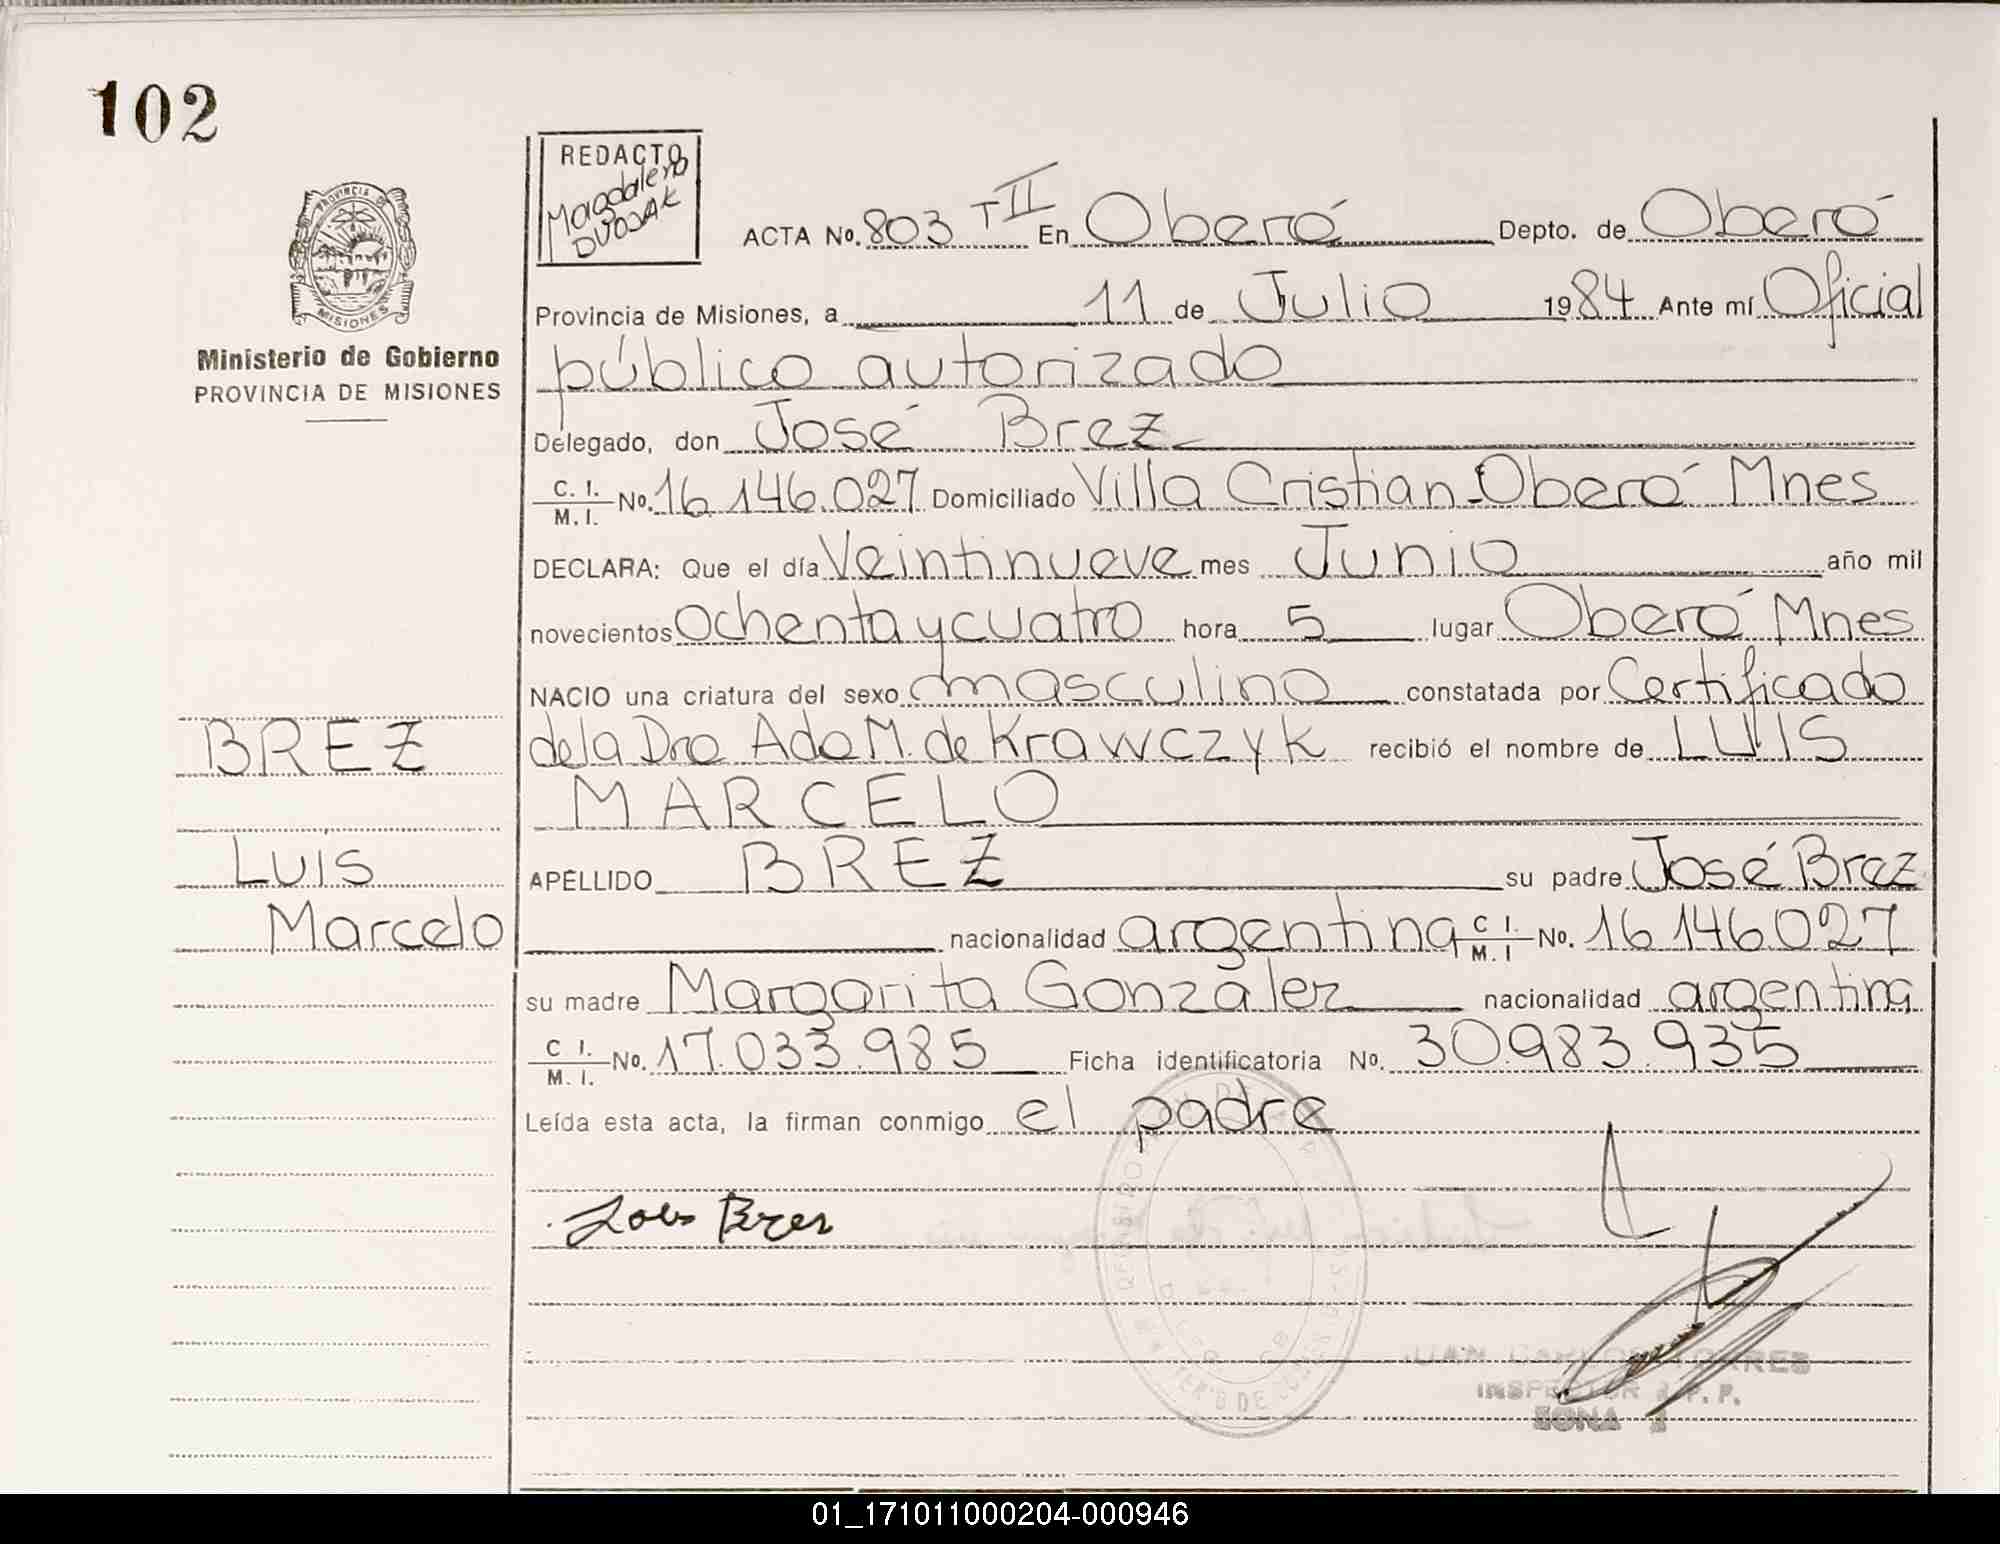 102
PROVINCIA DE
MISIONES
Ministerio de Gobierno
PROVINCIA DE MISIONES
REDACTO
Magdalena
DVOJAK
ACTA No. 803 T II En Oberá Depto. de Oberá
Provincia de Misiones, a 11 de Julio 1984 Ante mí Oficial
público autorizado
Delegado, don José Brez
C. I. M. I. No. 16.146.027 Domiciliado Villa Cristian-Oberá Mnes
DECLARA: Que el día Veintinueve mes Junio año mil
novecientos Ochenta y cuatro hora 5 lugar Oberá Mnes
NACIO una criatura del sexo masculino constatada por Certificado
BREZ
de la Dra Ada M. de Krawczyk recibió el nombre de LUIS
MARCELO
Luis
APELLIDO BREZ su padre José Brez
Marcelo
nacionalidad argentina C I. M. I No. 16 146.027
su madre Margarita González nacionalidad argentina
C I. M. I. No. 17.033.985 Ficha identificatoria No. 30.983.935
Leída esta acta, la firman conmigo el padre
Brez
JUAN CARLOS TORRES
INSPECTOR R.P.P.
ZONA
01_171011000204-000946